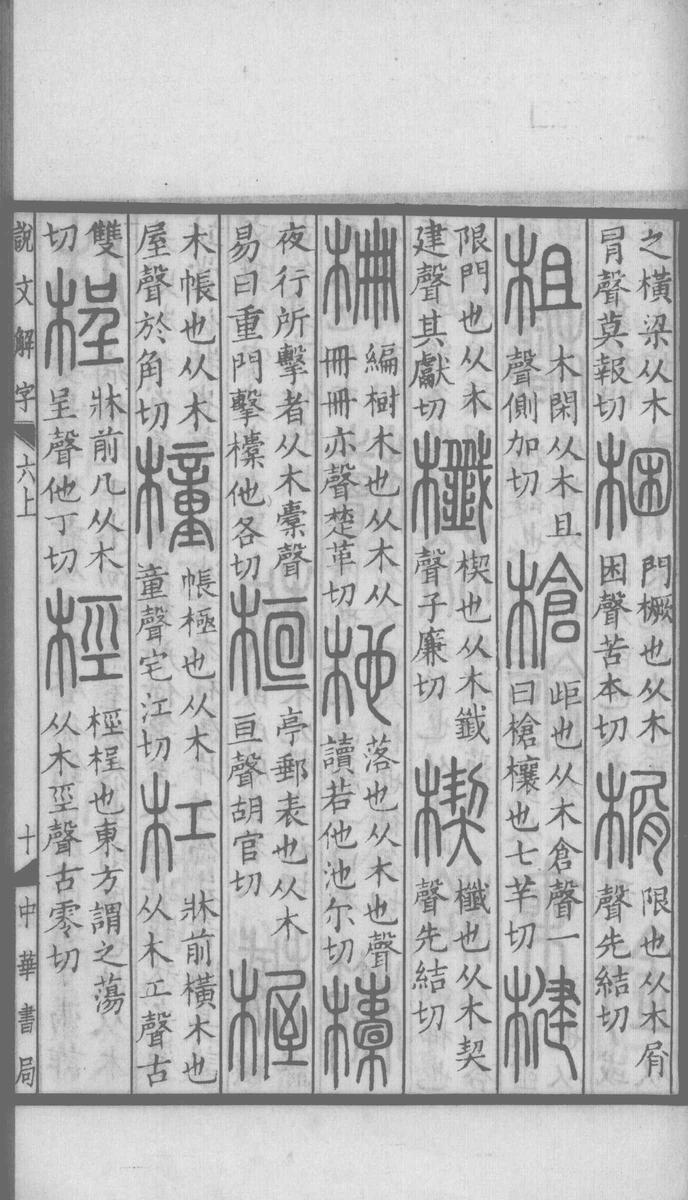 之橫梁从木
冒聲莫報切
梱
門橛也从木
困聲苦本切
榍
限也从木屑
聲先結切
柤
木閑从木且
聲側加切
槍
歫也从木倉聲一
曰槍欀也七羊切
楗
限門也从木
建聲其獻切
櫼
楔也从木韱
聲子廉切
楔
櫼也从木契
聲先結切
柵
編樹木也从木从
冊冊亦聲楚革切
杝
落也从木也聲
讀若他池尒切
㯓
夜行所擊者从木橐聲
易曰重門擊㯓他各切
桓
亭郵表也从木
亘聲胡官切
楃
木帳也从木
屋聲於角切
橦
帳極也从木
童聲宅江切
杠
牀前橫木也
从木工聲古
雙
切
桯
牀前几从木
呈聲他丁切
桱
桱桯也東方謂之蕩
从木巠聲古零切
說文解字 六上 十 中華書局